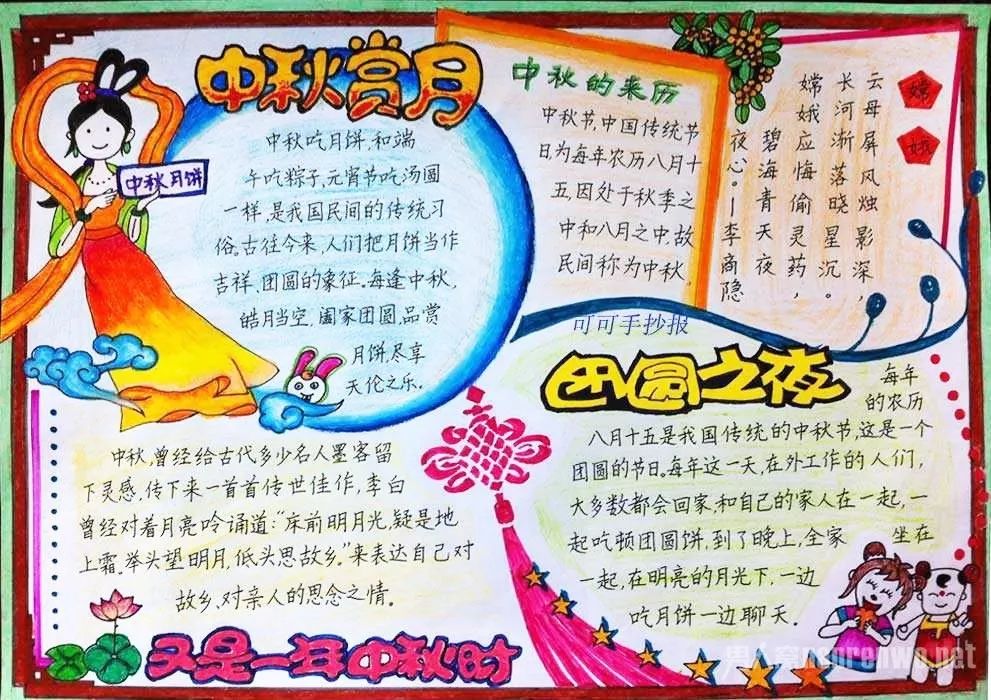 中秋赏月
中秋月饼
中秋吃月饼,和端
午吃粽子,元宵节吃汤圆
一样,是我国民间的传统习
俗。古往今来,人们把月饼当作
吉祥、团圆的象征。每逢中秋,
皓月当空,阖家团圆,品尝
月饼,尽享
天伦之乐.
中秋的来历
中秋节,中国传统节
日为每年农历八月十
五,因处于秋季之
中和八月之中,故
民间称为中秋.
嫦娥
云母屏风烛影深,
长河渐落晓星沉。
嫦娥应悔偷灵药,
碧海青天夜
夜心。—李商隐
可可手抄报
团圆之夜
每年
的农历
八月十五是我国传统的中秋节,这是一个
团圆的节日。每年这一天,在外工作的人们,
大多数都会回家,和自己的家人在一起,一
起吃顿团圆饼,到了晚上,全家 坐在
一起,在明亮的月光下,一边
吃月饼一边聊天.
中秋,曾经给古代多少名人墨客留
下灵感,传下来一首首传世佳作,李白
曾经对着月亮吟诵道:“床前明月光,疑是地
上霜.举头望明月,低头思故乡。”来表达自己对
故乡,对亲人的思念之情.
又是一年中秋时